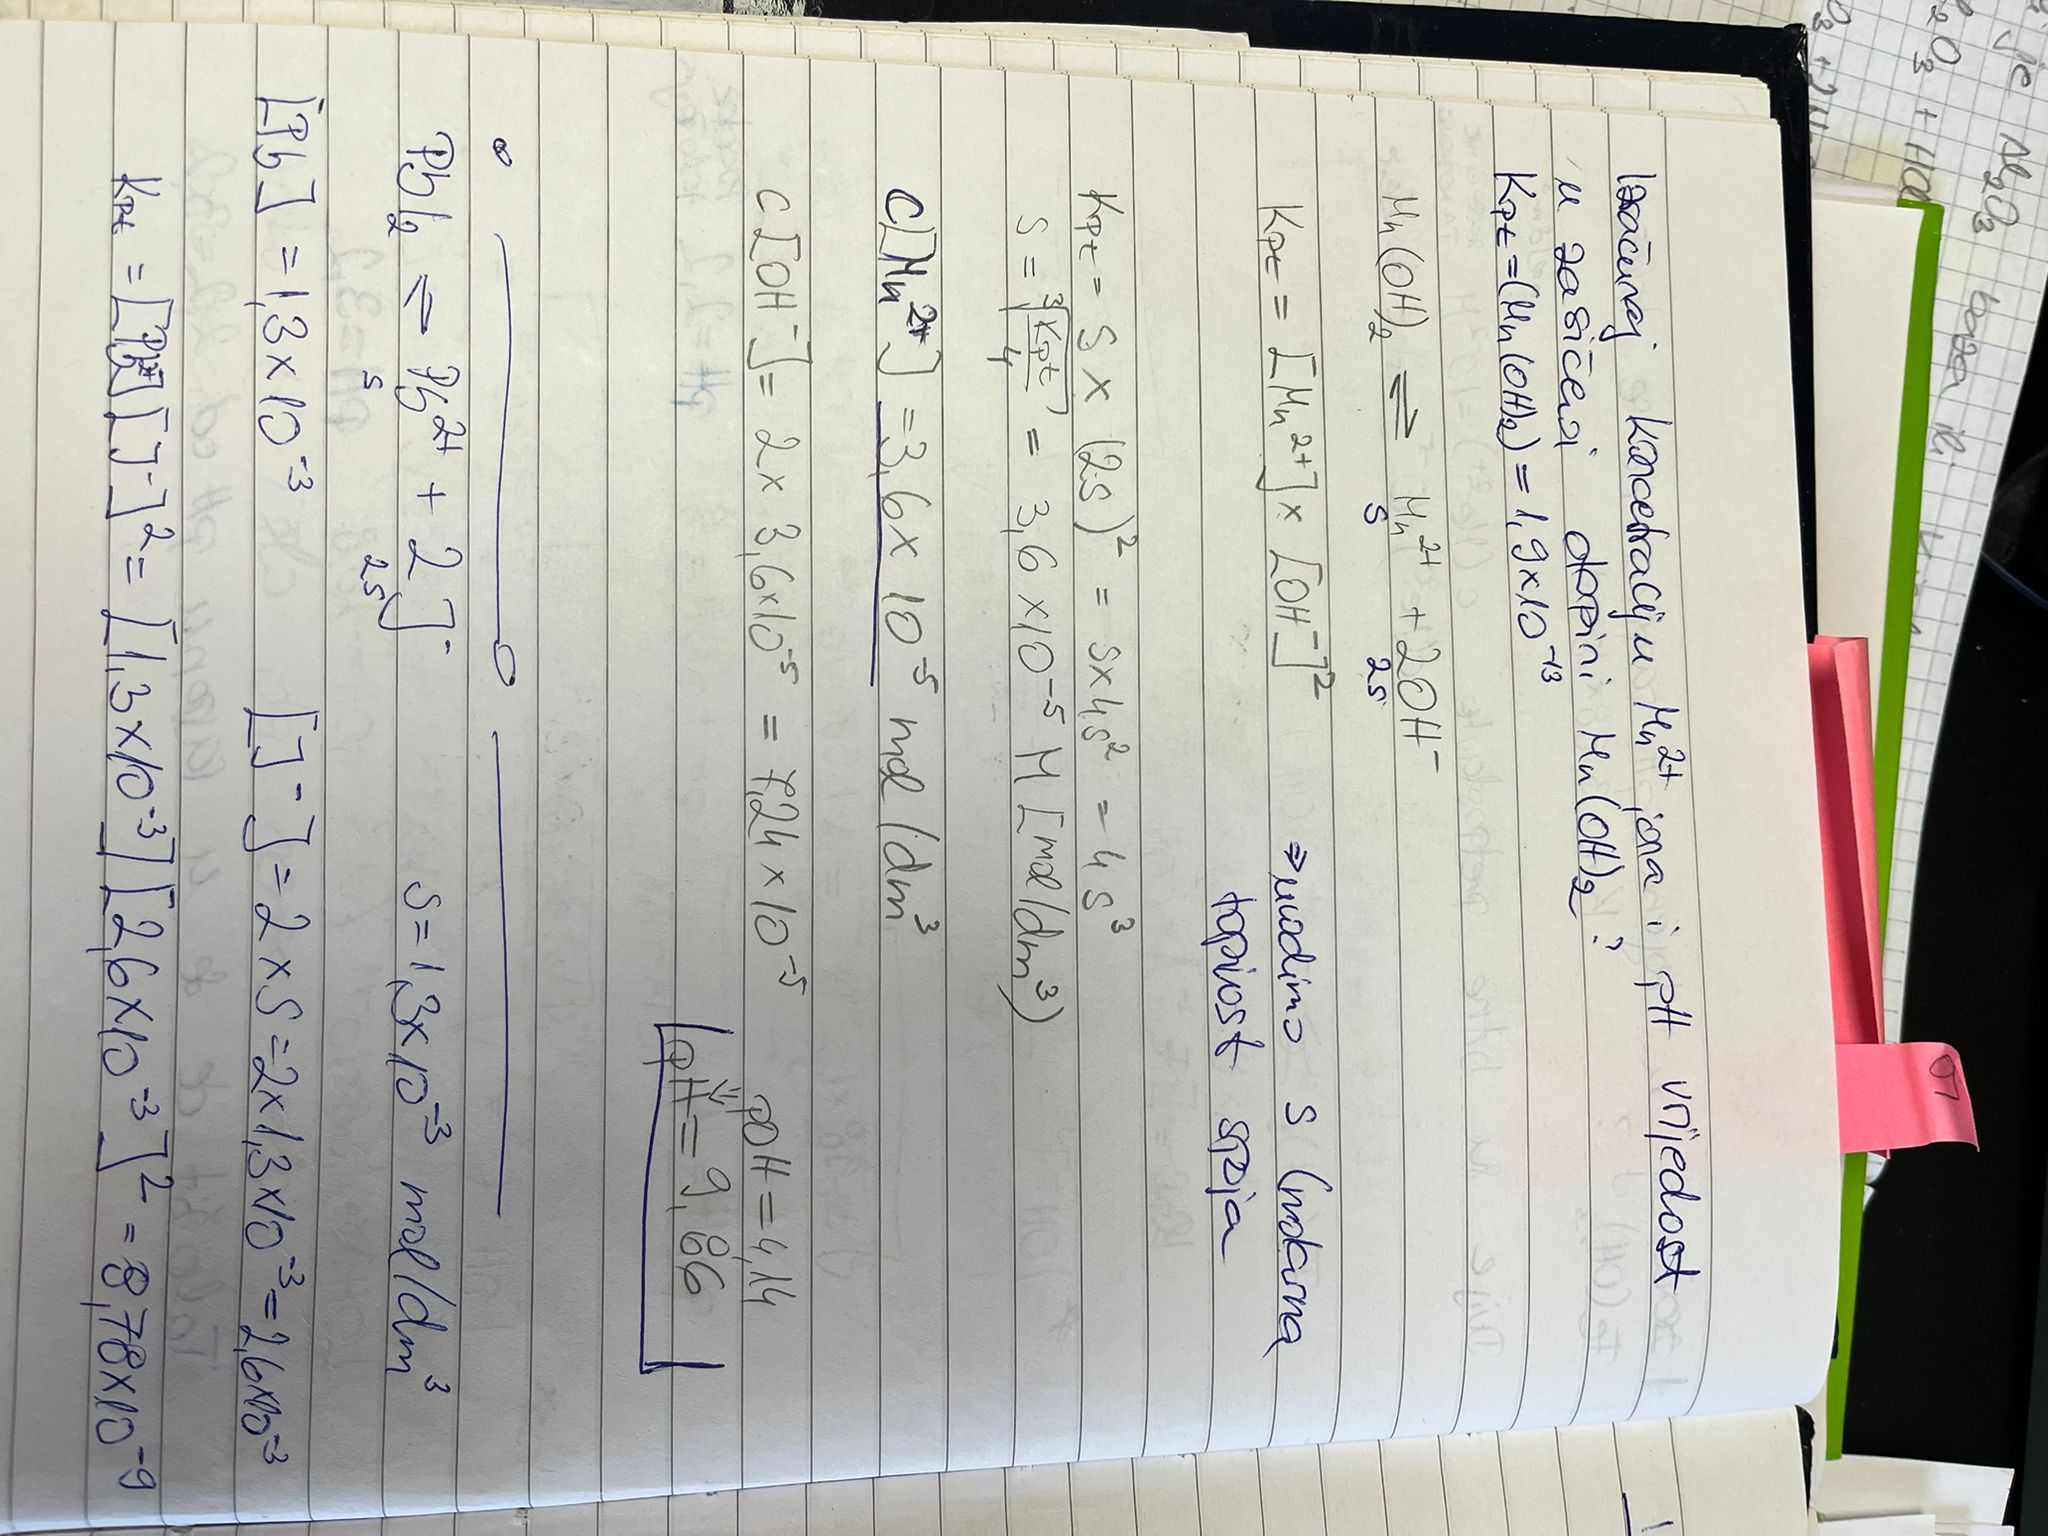 Izračunaj koncetraciju Mn²⁺ jona i pH vrijedost
u zasićenoj otopini Mn(OH)₂?
Kpt=(Mn(OH)₂)=1,9x10⁻¹³
Mn(OH)₂ ⇌ Mn²⁺ + 2OH⁻
s 2s
Kpt = [Mn²⁺] x [OH⁻]² ⇒ uvodimo s (molarna
topivost spoja
Kpt = s x (2s)² = s x 4s² = 4s³
s = ³√Kpt/4 = 3,6 x 10⁻⁵ M [mol/dm³)
c[Mn²⁺] = 3,6 x 10⁻⁵ mol/dm³
c[OH⁻] = 2 x 3,6x10⁻⁵ = 7,24 x 10⁻⁵ pOH = 4,14
⇓
pH = 9,86
PbI₂ ⇌ Pb²⁺ + 2I⁻ s = 1,3x10⁻³ mol/dm³
s 2s
[Pb] = 1,3x10⁻³ [I⁻] = 2 x s = 2x1,3x10⁻³ = 2,6x10⁻³
Kpt = [Pb²⁺][I⁻]² = [1,3x10⁻³][2,6x10⁻³]² = 8,78x10⁻⁹
je Al₂O₃ baza ili
Al₂O₃ + HCl